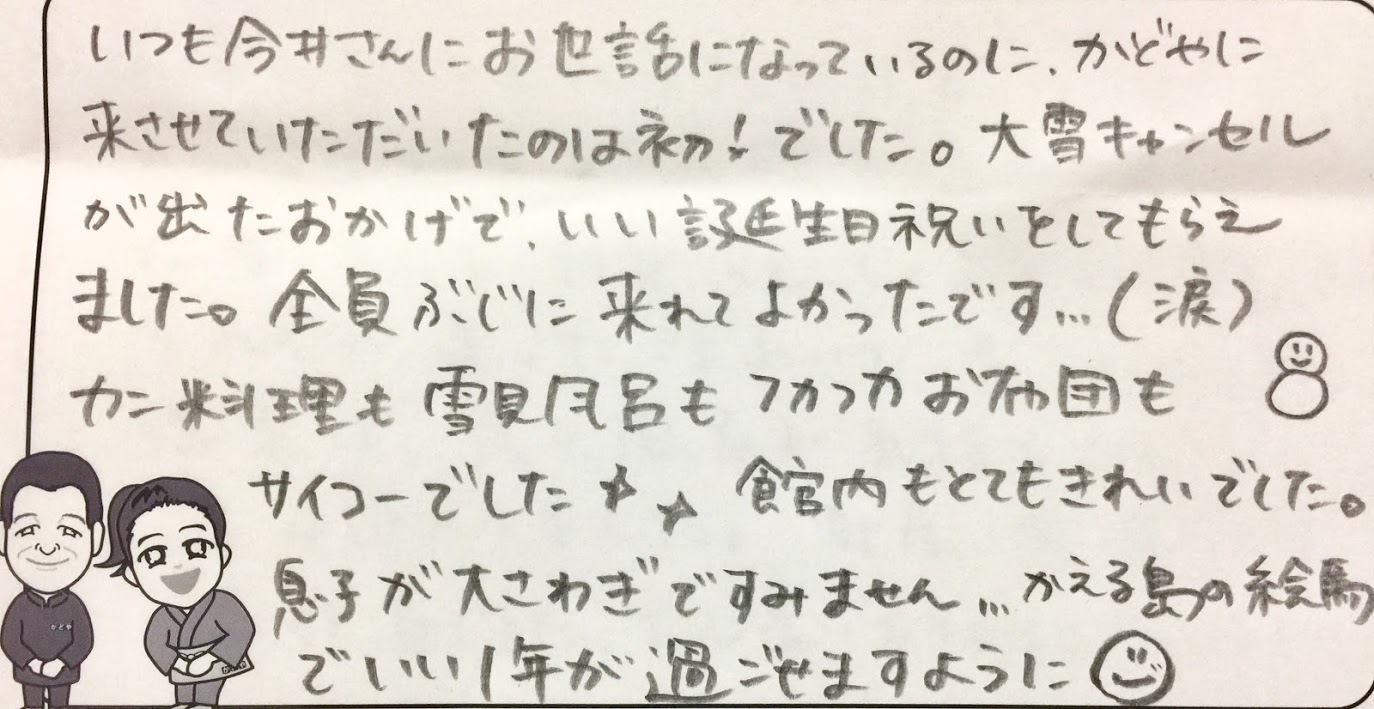 いつも今井さんにお世話になっているのに、かどやに
来させていただいたのは初!でした。大雪キャンセル
が出たおかげで、いい誕生日祝いをしてもらえ
ました。全員ぶじに来れてよかったです…(涙)
カニ料理も雪見風呂もフカフカお布団も
サイコーでした 館内もとてもきれいでした。
息子が大さわぎですみません…かえる島の絵馬
でいい1年が過ごせますように
かどや